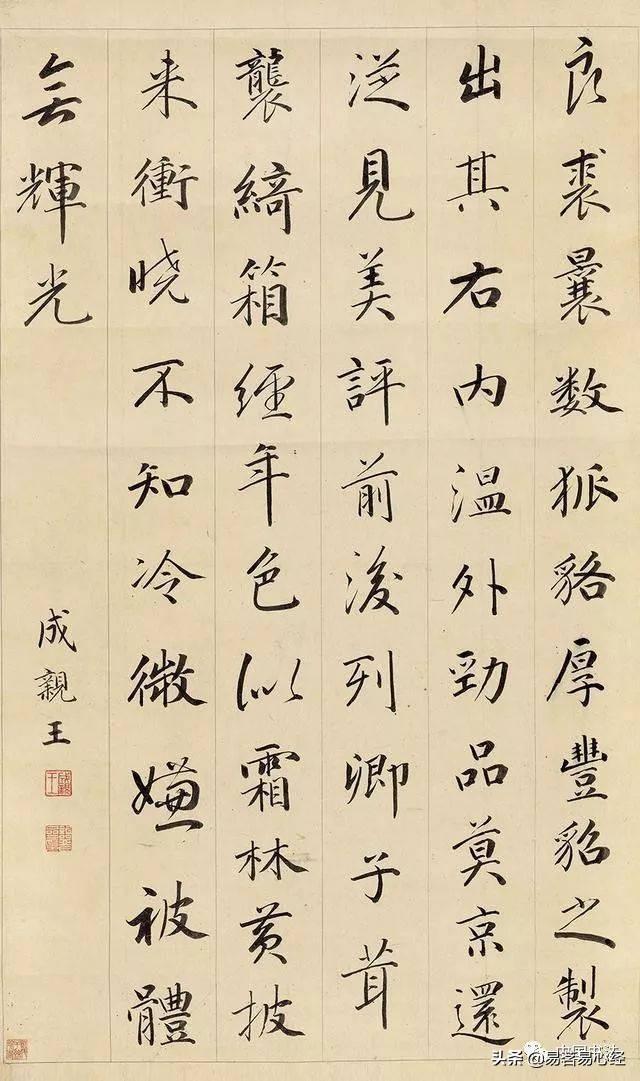 良裘曩数狐貉厚豐貂之製
出其右内温外勁品莫京還
從見美評前後列卿子茸
襲綺箱經年色似霜林黄披
来衝曉不知冷微嫌被體
無輝光
成親王
中国书法
头条 @易客易心经